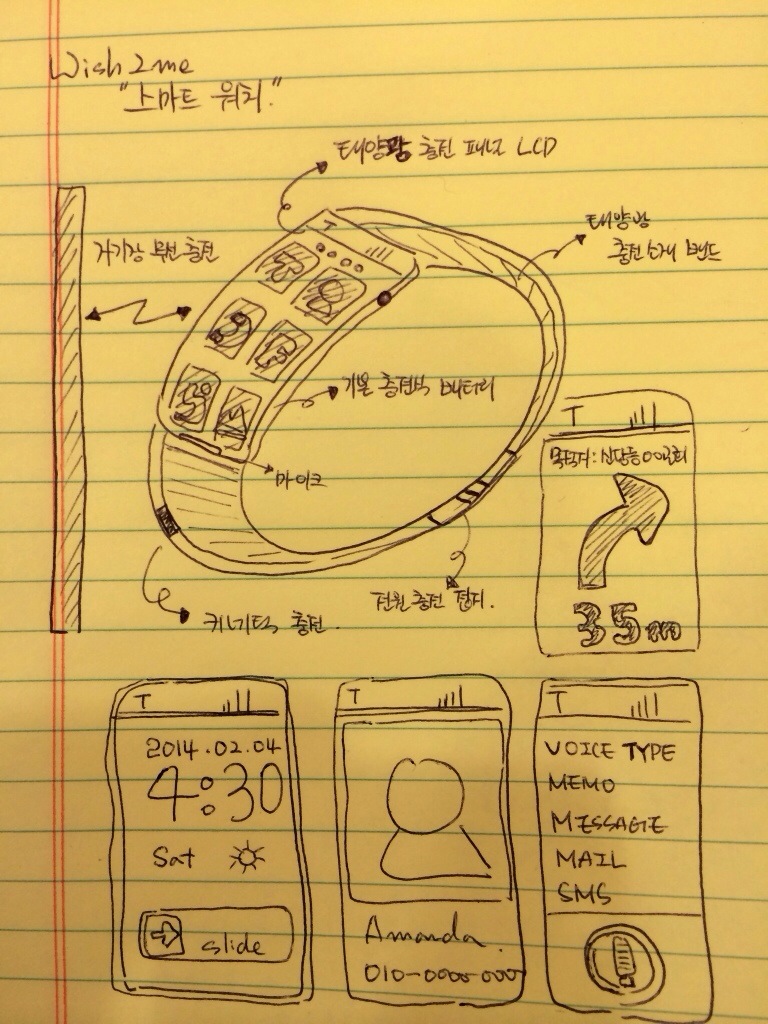 Wish 2 me
"스마트 워치."
태양광 충전 패널 LCD
태양광
충전 소재 밴드
자기장 무선 충전
기본 충전식 배터리
마이크
전원 충전 단자.
키네틱 충전.
T
T
목적지: 신당동 00교회
35m
T
2014.02.04
4:30
Sat
slide
T
Amanda.
010-0000-000
T
VOICE TYPE
MEMO
MESSAGE
MAIL
SMS